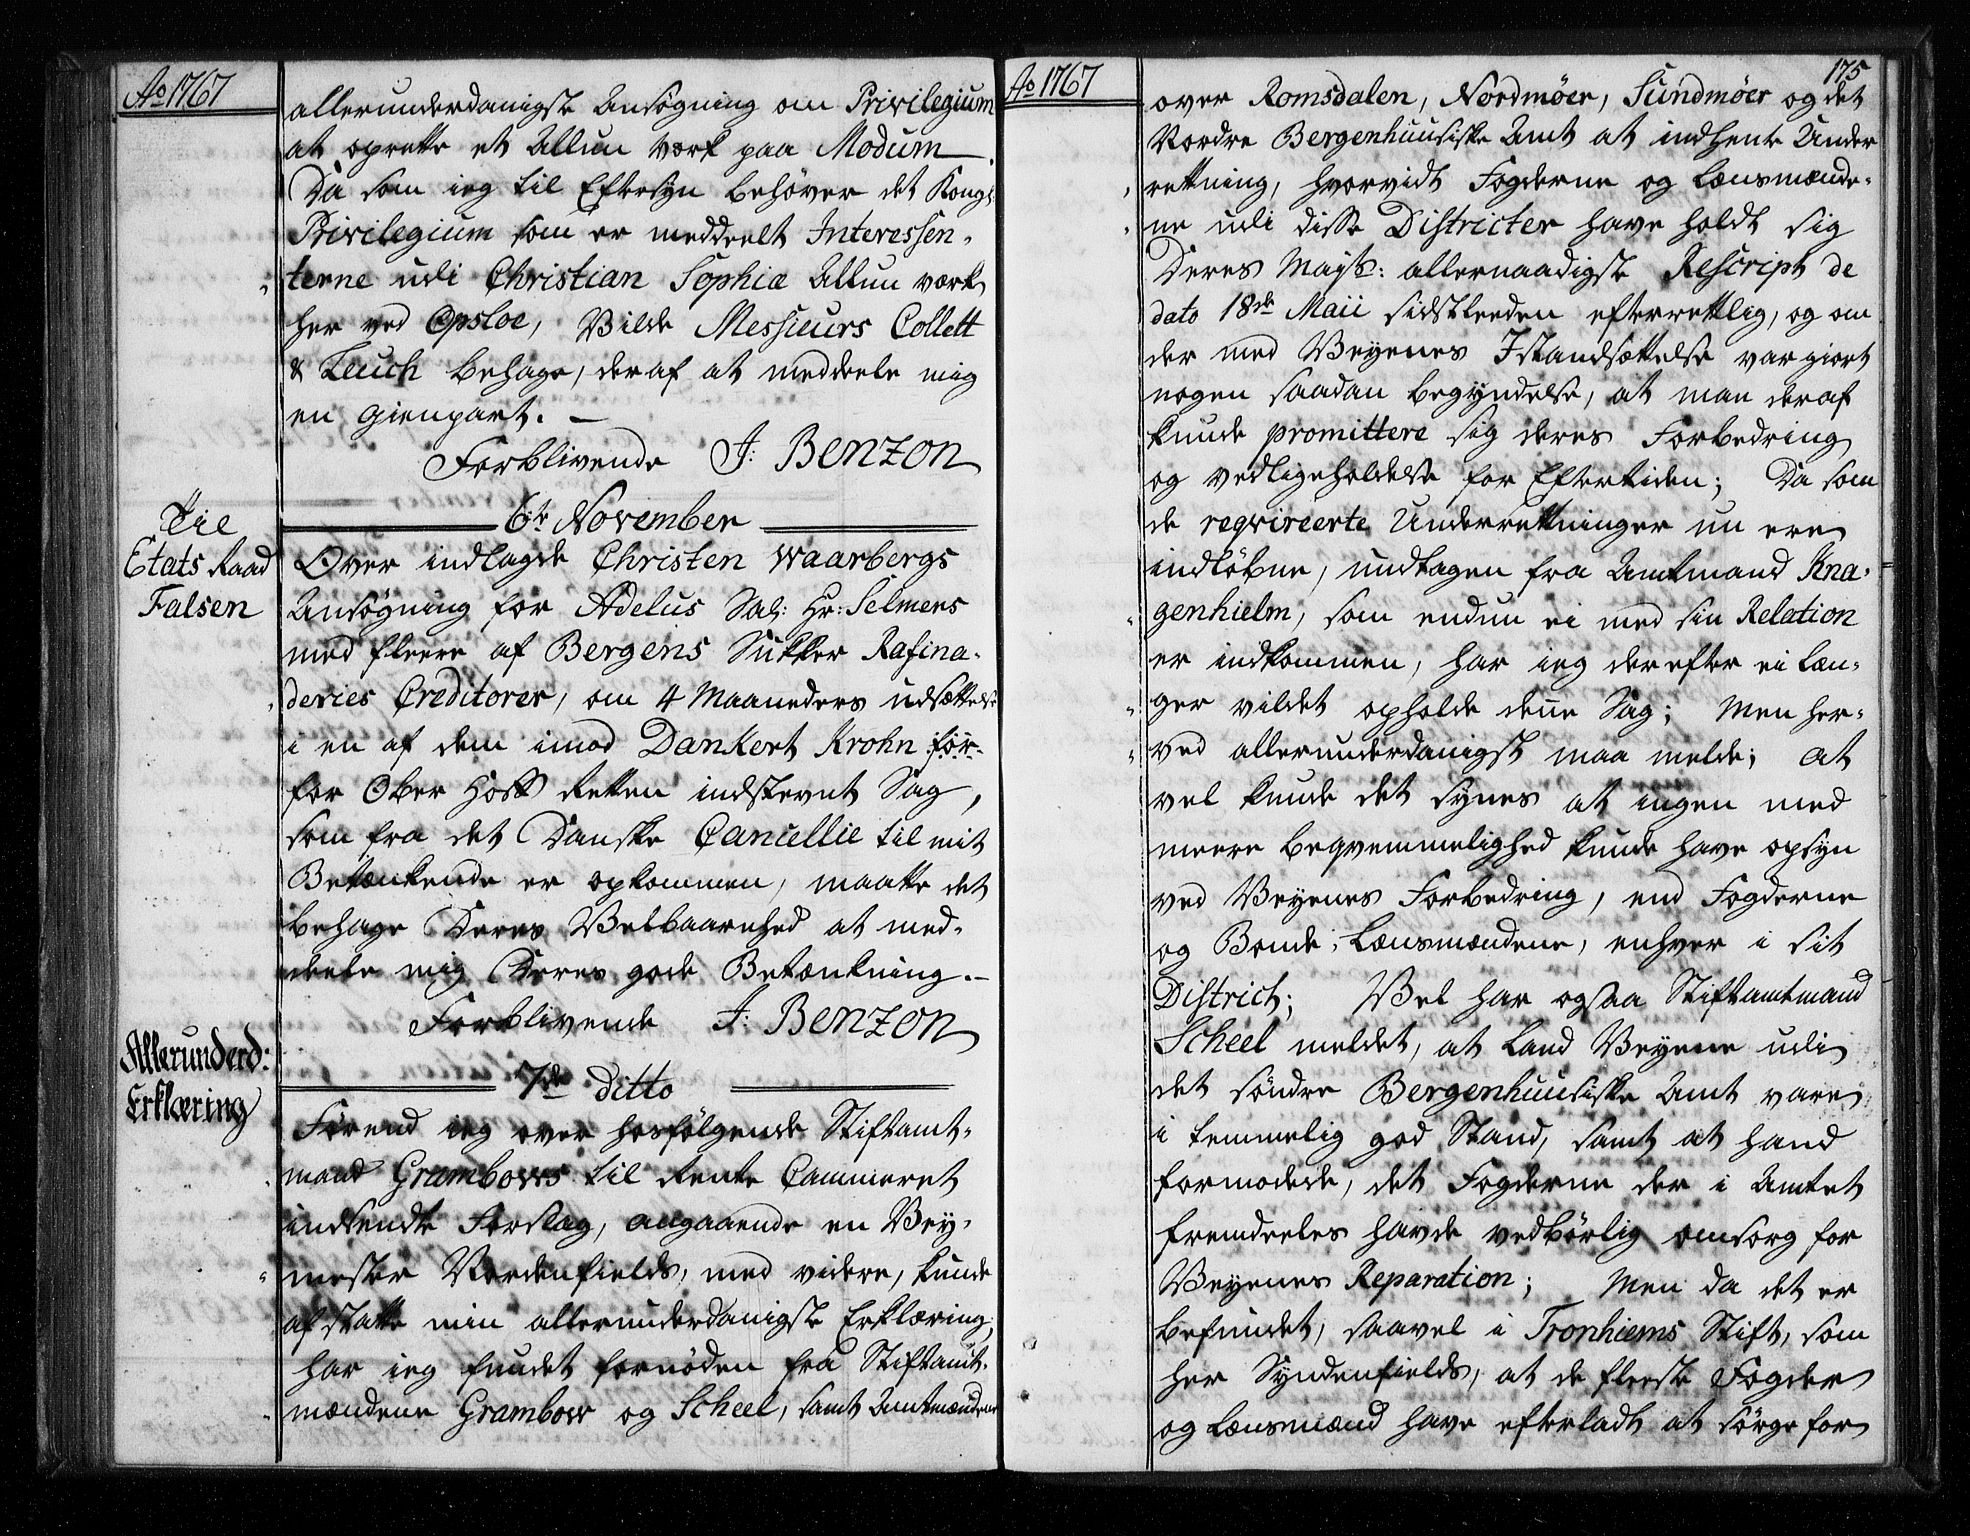 Ao 1767
allerunderdanigste Ansøgning om Privilegium
at oprette et Allun Verk paa Modum.
Da som ieg til Eftersyn behøver det Kongl:
Privilegium som er meddeelt Interessen-
terne udi Christian Sophiæ Allun værk
her ved Opsloe, Vilde Messieurs Collett
& Leuch behage, deraf at meddeele mig
en gienpart. —
Forblivende J: Benzon
6te November
Til
Etats Raad
Falsen
Over indlagde Christen Waarbergs
Ansøgning for Adelus Sal: Hr: Selmers
med fleere af Bergens Sukker Rafina-
deries Creditorer, om 4 Maaneders udsættelse
i en af dem imod Dankert Krohn før-
for Ober Hoff Retten indstevnt Sag,
som fra det Danske Cancellie til mit
Betænkende er opkommen, maatte det
behage Deres Velbaarnhed at med-
deele mig Deres gode Betænkning. —
Forblivende J: Benzon
7de ditto
Allerunderd:
Erklæring
Førend ieg over hosfølgende Stiftamt-
mand Grambows til Rente Cammeret
indsendte Forslag, angaaende en Vey-
mester Nordenfields, med videre, kunde
afstatte min allerunderdanigste Erklæring,
har ieg fundet fornøden fra Stiftamt-
mændene Grambow og Scheel, samt Amtmændene
Ao 1767
175
over Romsdalen, Nordmøer, Sundmøer og det
Nordre Bergenhuusiske Amt at indhente Under
rettning, hvorvidt Fogderne og Lænsmænde-
ne udi disse Districter have holdt sig
Deres Mayts: allernaadigste Rescript de
dato 18de Maii sidstleeden efterrettlig, og om
der med Veyenes Istandsættelse var giort
nogen saadan begyndelse, at man deraf
kunde promittere sig deres Forbedring
og vedligeholdelse for Eftertiden; Da som
de reqvireerte Underrettninger nu ere
indløbne, undtagen fra Amtmand Kna-
genhielm, som endnu ei med sin Relation
er indkommen, har ieg derefter ei læn-
ger vildet opholde denne Sag; Men her-
ved allerunderdanigst maa melde; At
vel kunde det synes at ingen med
meere beqvemmelighed kunde have opsyn
ved Veyenes Forbedring, end Fogderne
og Bonde-Lænsmændene, enhver i sit
District; Vel har ogsaa Stiftamtmand
Scheel meldet, at Land Veyene udi
det søndre Bergenhuusiske Amt vare
i temmelig god Stand, samt at hand
formodede, det Fogderne der i Amtet
fremdeeles havde vedbørlig omsorg for
Veyenes Reparation; Men da det er
befundet, saavel i Tronhiems Stift, som
her Syndenfields, at de fleeste Fogder
og Lænsmænd have efterladt at sørge for